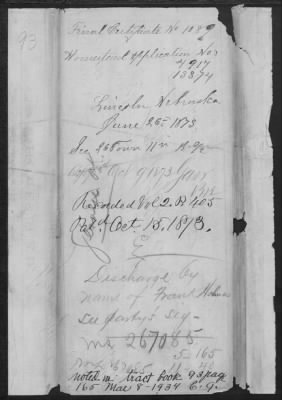 93
Final Certificate No 1089
Homestead Application Nos
4917
13374
Lincoln, Nebraska
June 26 - 1873
Sec 26 Town 11 N R 9 E
Oct 9 1873
Recorded Vol 2. P 405
Pat'd Oct. 15, 1873.
Discharge by
name of Frank
see party's seq -
267085
5-165
noted in tract book 93 page
165 Mar 8 - 1934 C.G.